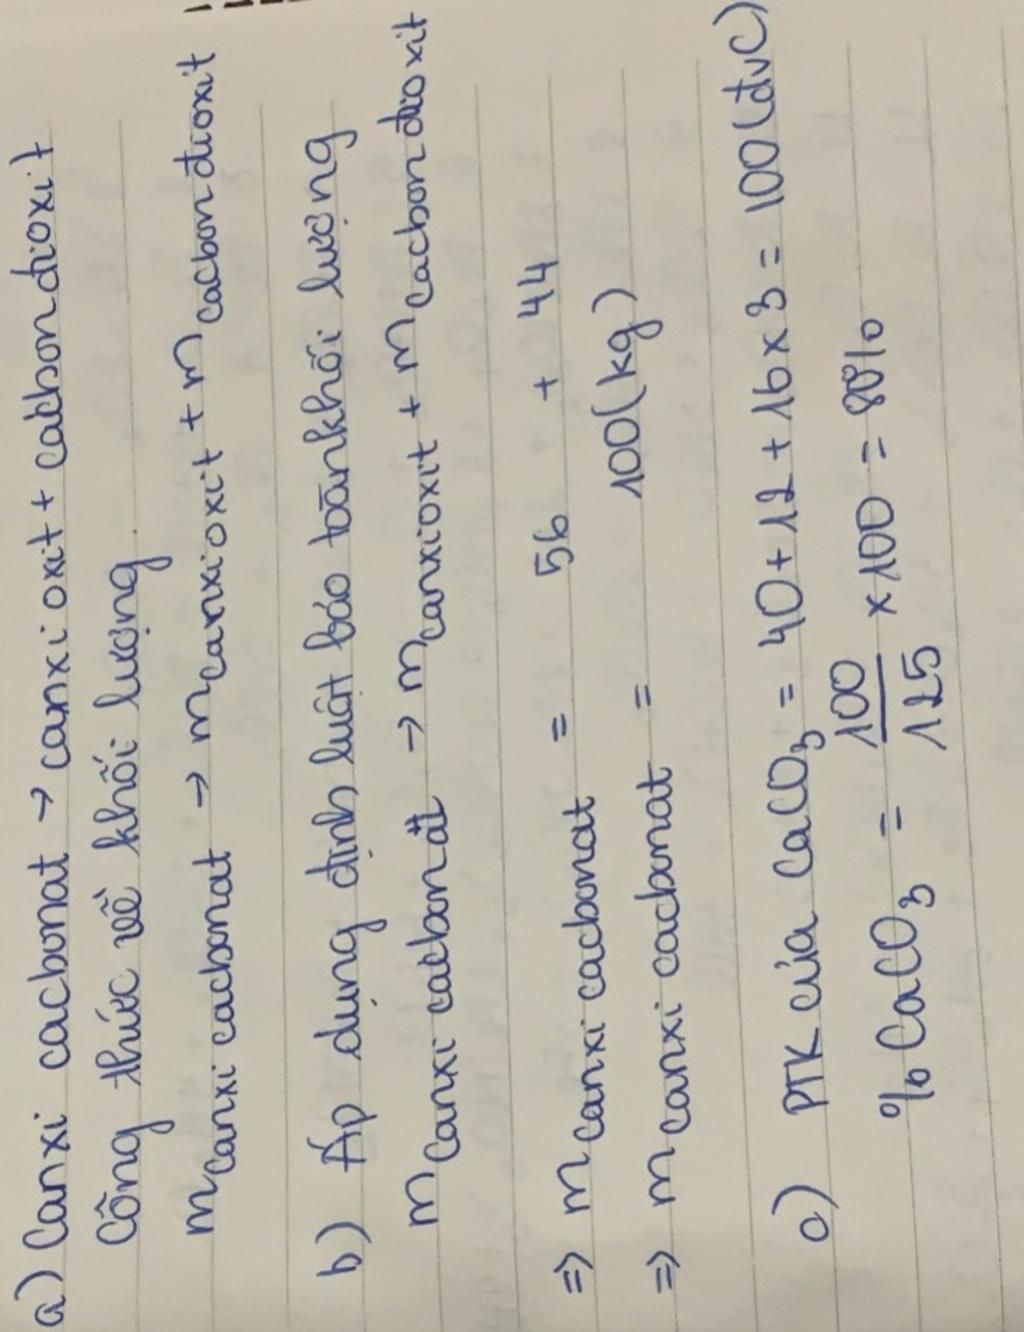 a) Canxi cacbonat → canxi oxit + cacbon đioxit
Công thức về khối lượng
mcanxi cacbonat → mcanxi oxit + mcacbon đioxit
b) Áp dụng định luật bảo toàn khối lượng
mcanxi cacbonat → mcanxi oxit + mcacbon đioxit
=> mcanxi cacbonat = 56 + 44
=> mcanxi cacbonat = 100(kg)
c) PTK của CaCO3 = 40 + 12 + 16 x 3 = 100 (đvC)
% CaCO3 = 100/125 x 100 = 80%